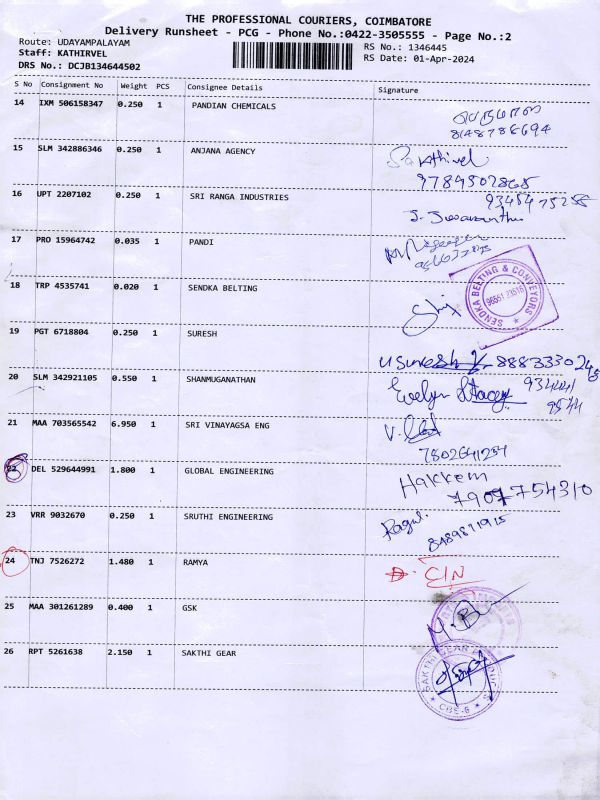 THE PROFESSIONAL COURIERS, COIMBATORE
Delivery Runsheet - PCG - Phone No.:0422-3505555 - Page No.:2
Route: UDAYAMPALAYAM
RS No.: 1346445
Staff: KATHIRVEL
RS Date: 01-Apr-2024
DRS No.: DCJB134644502
S No Consignment No Weight PCS Consignee Details Signature
14 IXM 506158347 0.250 1 PANDIAN CHEMICALS
8148786694
15 SLM 342886346 0.250 1 ANJANA AGENCY Sakthivel
9789502865
16 UPT 2207102 0.250 1 SRI RANGA INDUSTRIES 9345475258
17 PRO 15964742 0.035 1 PANDI
18 TRP 4535741 0.020 1 SENDKA BELTING
SENDKA BELTING & CONVEYORS
96551 23516
19 PGT 6718804 0.250 1 SURESH
U Suresh 8883330245
20 SLM 342921105 0.550 1 SHANMUGANATHAN Evelyn Stacey 934441
9544
21 MAA 703565542 6.950 1 SRI VINAYAGSA ENG
7802641254
22 DEL 529644991 1.800 1 GLOBAL ENGINEERING Hakkem
7907754310
23 VRR 9032670 0.250 1 SRUTHI ENGINEERING Ragul.
8489871915
24 TNJ 7526272 1.480 1 RAMYA D. C/N
25 MAA 301261289 0.400 1 GSK
26 RPT 5261638 2.150 1 SAKTHI GEAR
SAKTHI GEAR
CBE-6